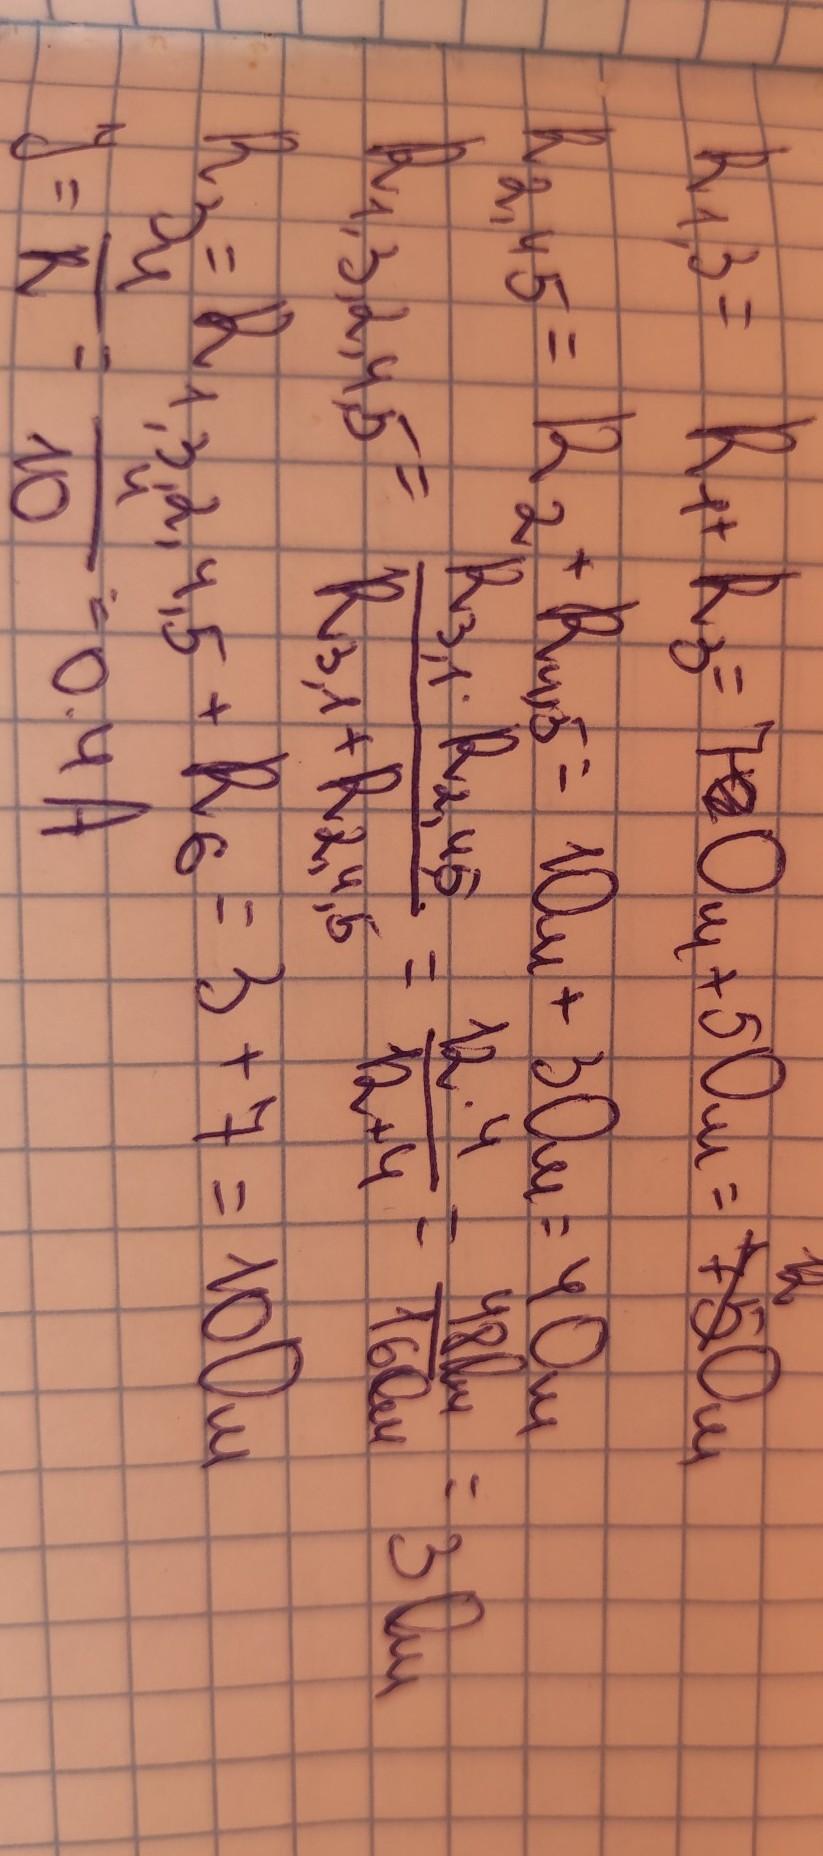 R1,3 = R1 + R3 = 7 Ом + 5 Ом = 12 Ом
R2,45 = R2 + R4,5 = 1 Ом + 3 Ом = 4 Ом
R1,3,2,4,5 = R3,1 · R2,4,5 / R3,1 + R2,4,5 = 12 · 4 / 12 + 4 = 48 Ом / 16 Ом = 3 Ом
RЭ = R1,3,2,4,5 + R6 = 3 + 7 = 10 Ом
У = U / R = 4 / 10 = 0.4 A